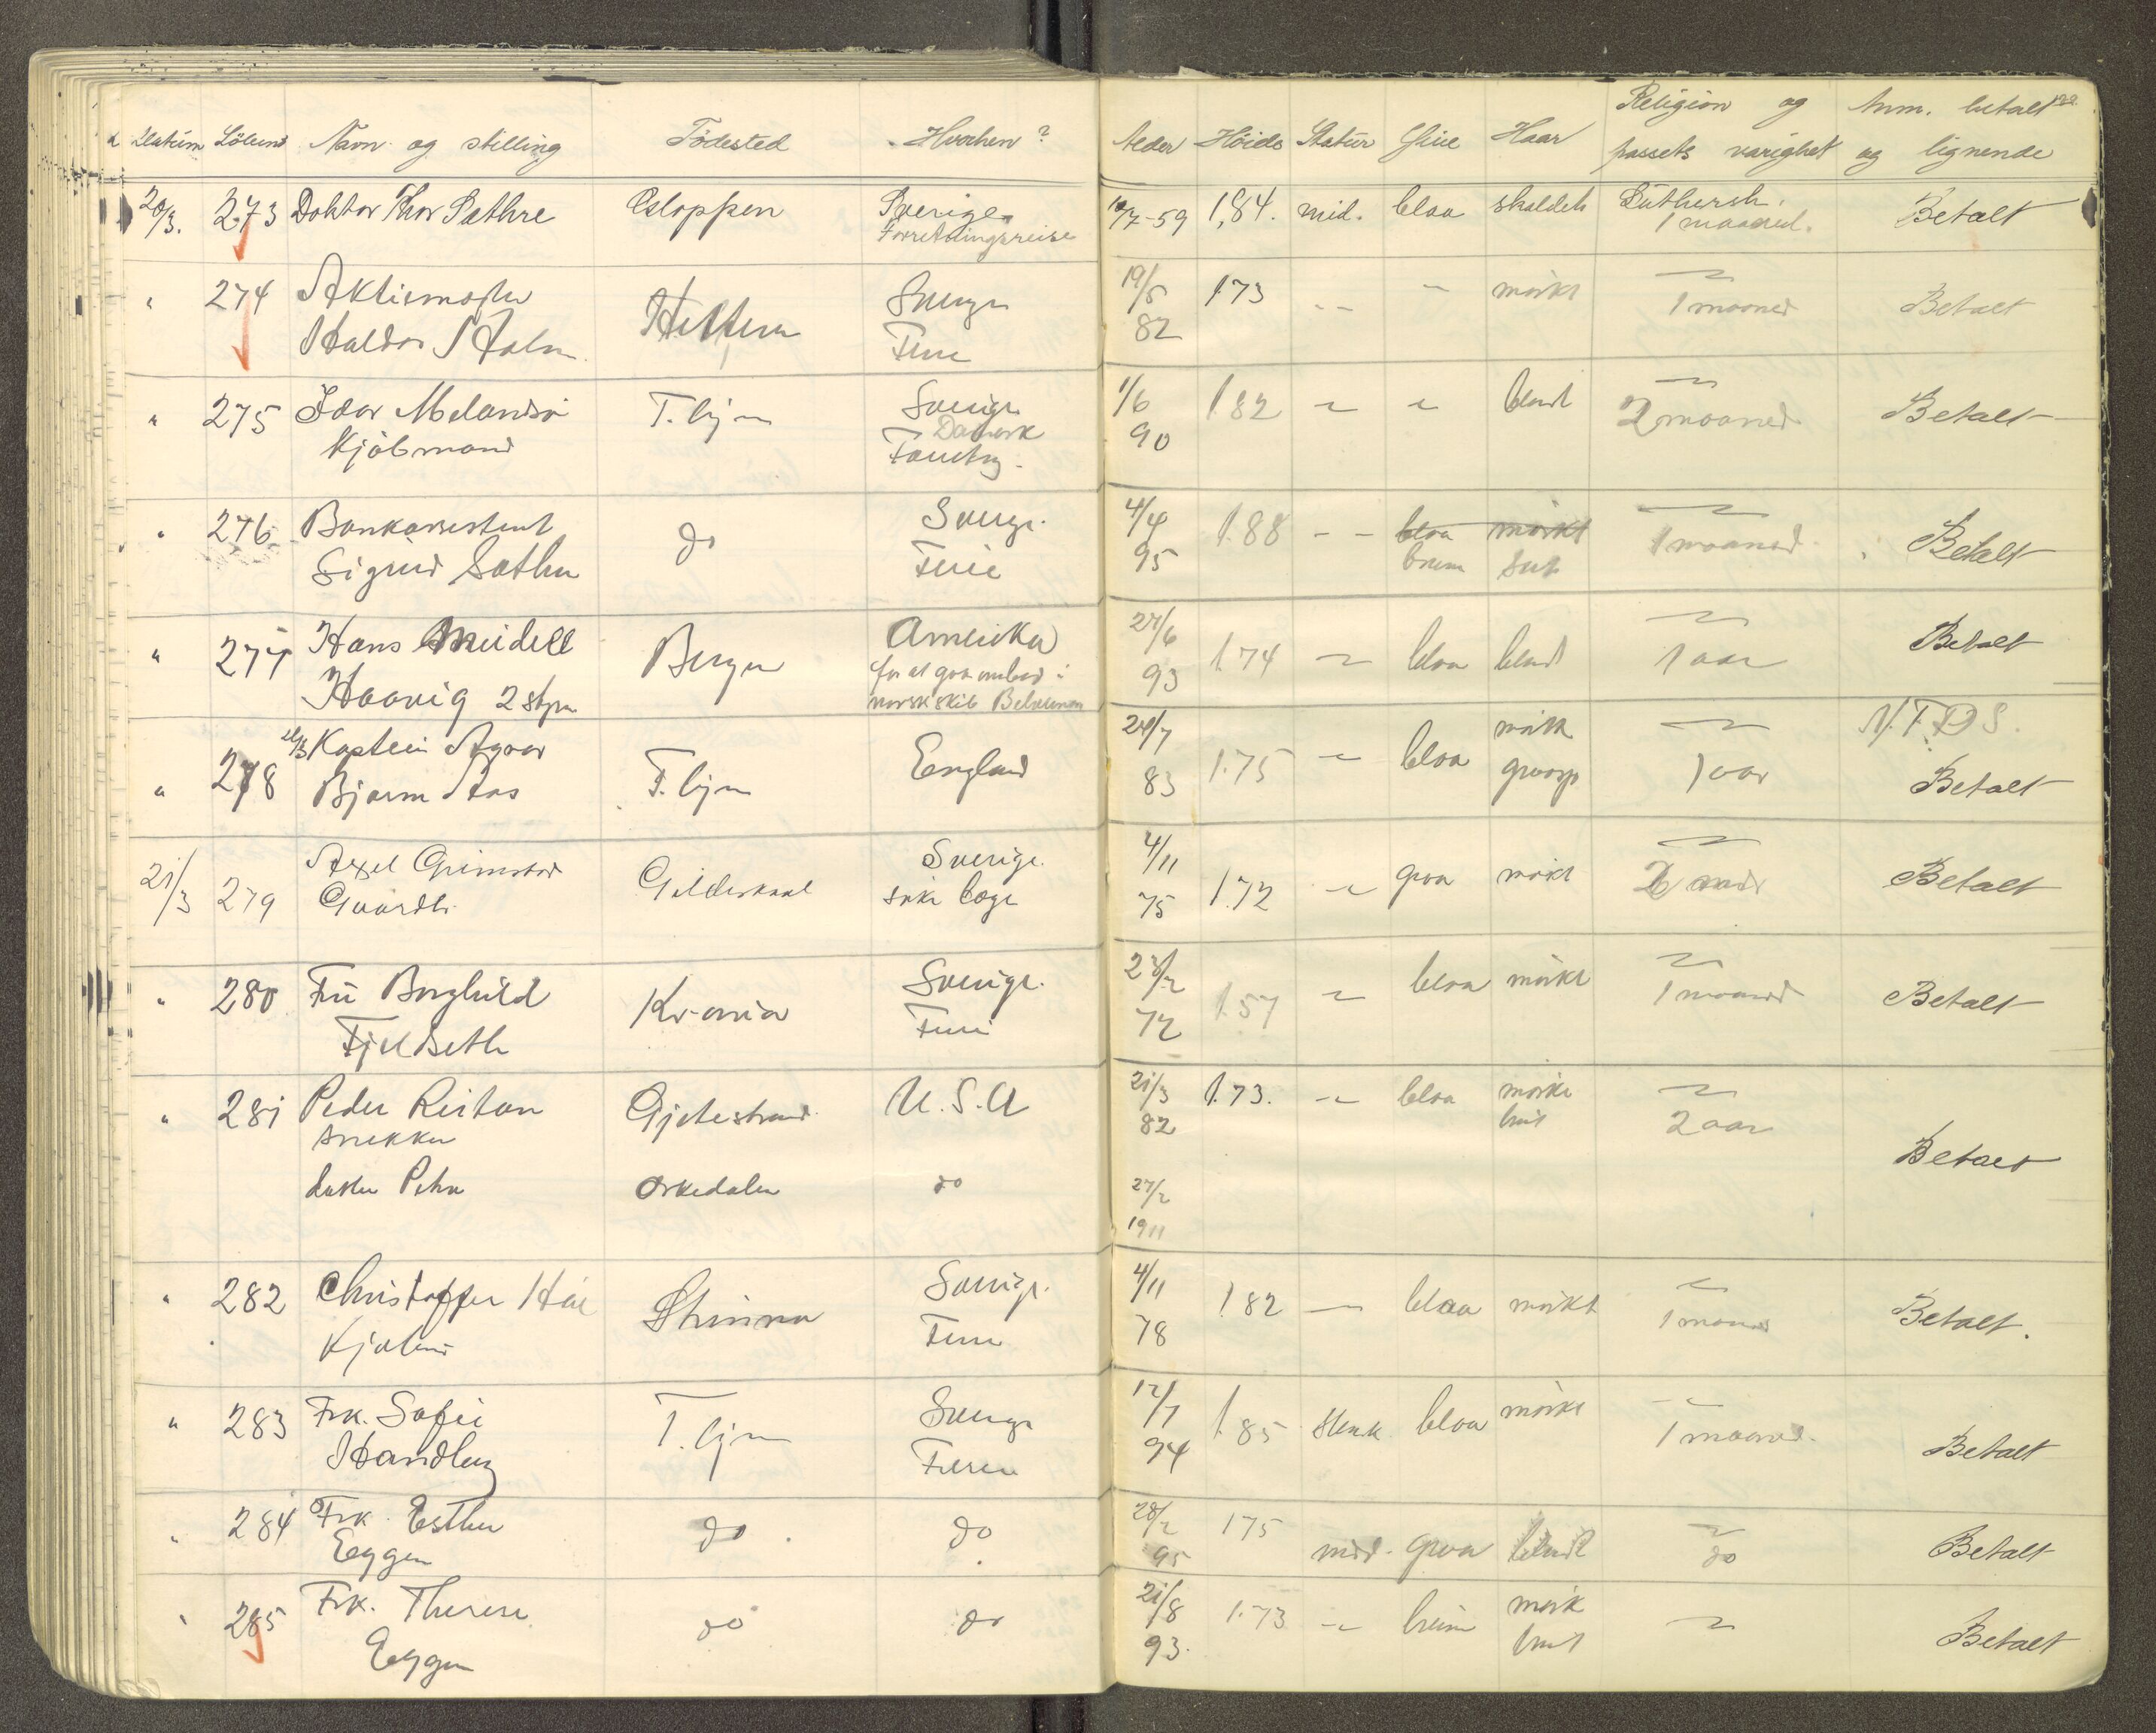 Datum Löbenr Navn og stilling Födested Hvorhen? Alder Höide Statur Öine Haar Religion og passets varighet Anm. betalt og lignende
20/3. 273 Doktor Thor Sathre Sverige 10/7-59 1,84. mid. blaa skaldet Luthersk. Betalt
Forretningsreise 1 maaned.
" 274 Hitteren Sverige 19/5 173 -- " mörkt 1 maaned Betalt
Haldor Holm Ferie 82
" 275 Idar Melandsö T.hjem Sverige 1/6 1.82 " " blond 2 maaned Betalt
Kjöbmand Danmark 90
Forretng.
" 276 Bankassistent do Sverige 4/4 1.88 -- blaa mörkt 1 maaned Betalt
Sigurd Sathre Ferie 95 brune sort
" 277 Hans Meidell Bergen Amerika 27/6 1.74 " blaa blond 1 aar Betalt
Haavig 2 styrm for at gaa ombord i 93
norsk skib
" 278 Kaptein T.hjem England 20/7 1.75 " blaa mörk N.F.D.S.
Bjarm Aas 83 1 aar Betalt
21/3 279 Axel Grimstad Gildeskaal Sverige. 4/11 1.72 " graa mörkt 2 mdr Betalt
söke læge 75
" 280 Fru Borghild Kr-ania Sverige. 23/2 1.57 " blaa mörkt 1 maaned Betalt
Fjeldseth Ferie 72
" 281 Peder Reitan U.S.A 21/3 1.73. " blaa mörke
snekker 82 brunt 2 aar
datter Petra Orkedalen do 27/2 Betalt
1911
" 282 Christoffer Strinna Sverige. 4/11 1.82 " blaa mörkt 1 maaned Betalt.
Ferie 78
" 283 Frk. Sofie T.hjem Sverige 12/7 1.85 sterk blaa mörkt 1 maaned. Betalt
Handberg Ferie 94
" 284 Frk. Esther do do 28/2 175 mid. graa blond do Betalt
Eggen 95
" 285 Frk. Therese do do 21/8 1.73 " brune mörk " Betalt
Eggen 93. brunt